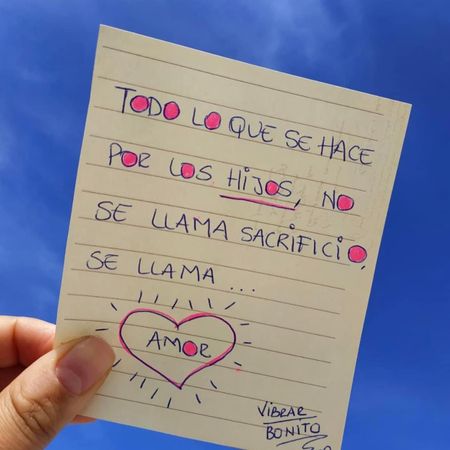 TODO LO QUE SE HACE
POR LOS HIJOS, NO
SE LLAMA SACRIFICIO,
SE LLAMA ...
AMOR
VIBRAR
BONITO